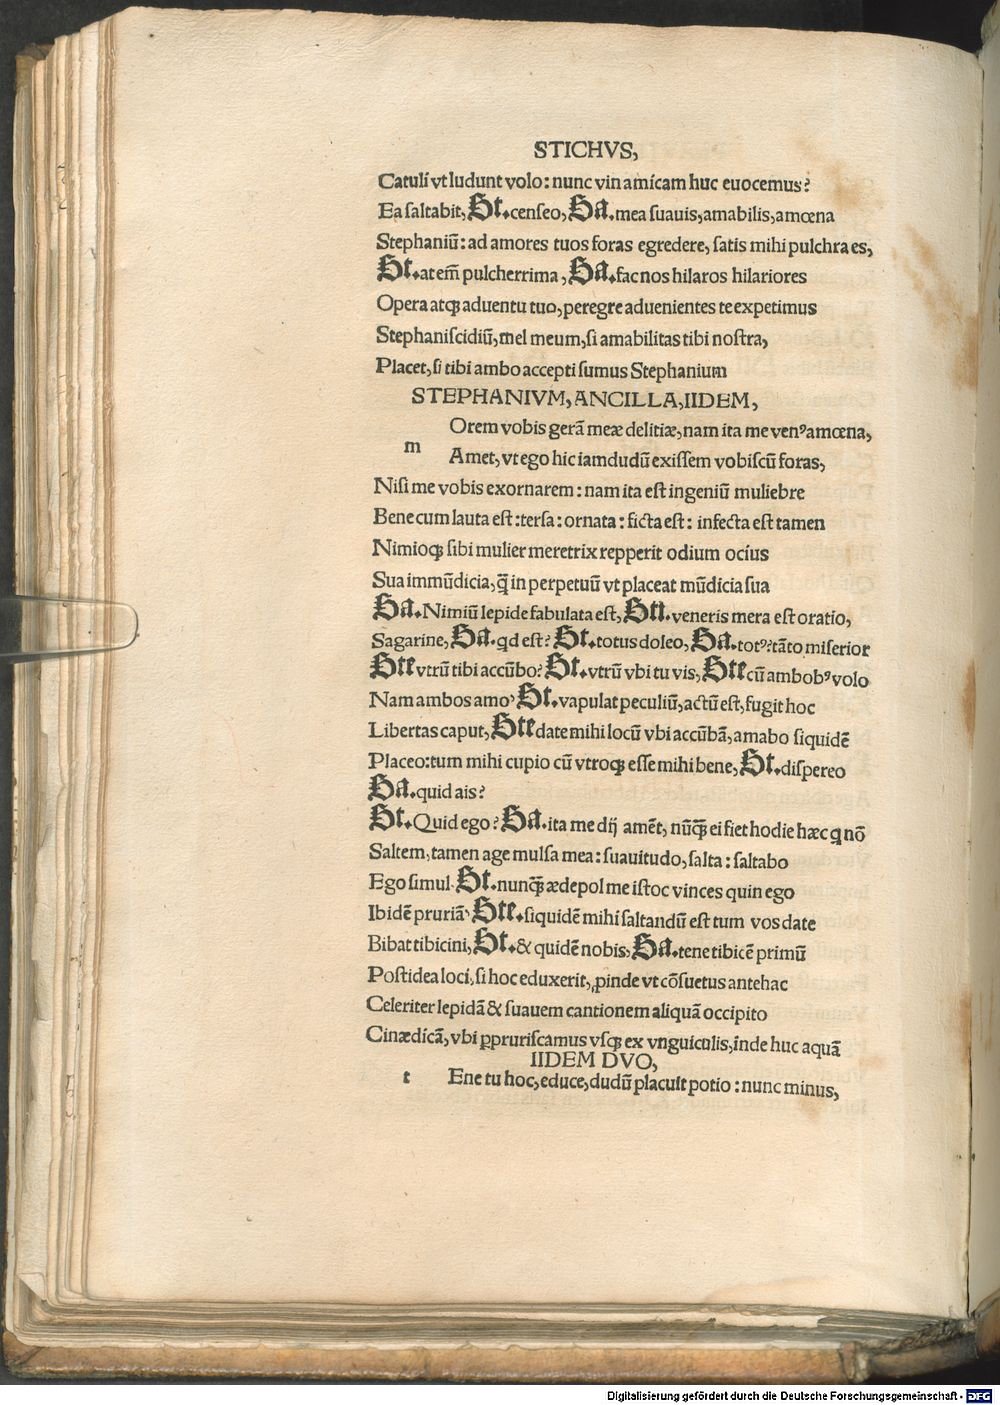 STICHVS,
Catuli vt ludunt volo: nunc vin amicam huc euocemus?
Ea saltabit, St. censeo, Sa. mea suauis, amabilis, amœna
Stephaniū: ad amores tuos foras egredere, satis mihi pulchra es,
St. at em̄ pulcherrima, Sa. fac nos hilaros hilariores
Opera atqꝫ aduentu tuo, peregre aduenientes te expetimus
Stephaniscidiū, mel meum, si amabilitas tibi nostra,
Placet, si tibi ambo accepti sumus Stephanium
STEPHANIVM, ANCILLA, IIDEM,
Orem vobis gerā meæ delitiæ, nam ita me venꝰ amœna,
m
Amet, vt ego hic iamdudū exissem vobiscū foras,
Nisi me vobis exornarem: nam ita est ingeniū muliebre
Bene cum lauta est: tersa: ornata: ficta est: infecta est tamen
Nimioqꝫ sibi mulier meretrix repperit odium ocius
Sua immūdicia, q̄ in perpetuū vt placeat mūdicia sua
Sa. Nimiū lepide fabulata est, Stl. veneris mera est oratio,
Sagarine, Sa. qd est? St. totus doleo, Sa. totꝰ? tāto miserior
Ste vtrū tibi accūbo? St. vtrū vbi tu vis, Ste cū ambobꝰ volo
Nam ambos amo, St. vapulat peculiū, actū est, fugit hoc
Libertas caput, Ste date mihi locū vbi accūbā, amabo siquidē
Placeo: tum mihi cupio cū vtroqꝫ esse mihi bene, St. dispereo
Sa. quid ais?
St. Quid ego? Sa. ita me dij amēt, nūqꝫ̄ ei fiet hodie hæc q nō
Saltem, tamen age mulsa mea: suauitudo, salta: saltabo
Ego simul. St. nunqꝫ̄ ædepol me istoc vinces quin ego
Ibidē pruriā, Ste. siquidē mihi saltandū est tum vos date
Bibat tibicini, St. & quidē nobis, Sa. tene tibicē primū
Postidea loci, si hoc eduxerit, ꝓinde vt cōsuetus antehac
Celeriter lepidā & suauem cantionem aliquā occipito
Cinædicā, vbi ꝑpruriscamus vsqꝫ ex vnguiculis, inde huc aquā
IIDEM DVO,
t Ene tu hoc, educe, dudū placuit potio: nunc minus,
Digitalisierung gefördert durch die Deutsche Forschungsgemeinschaft - DFG